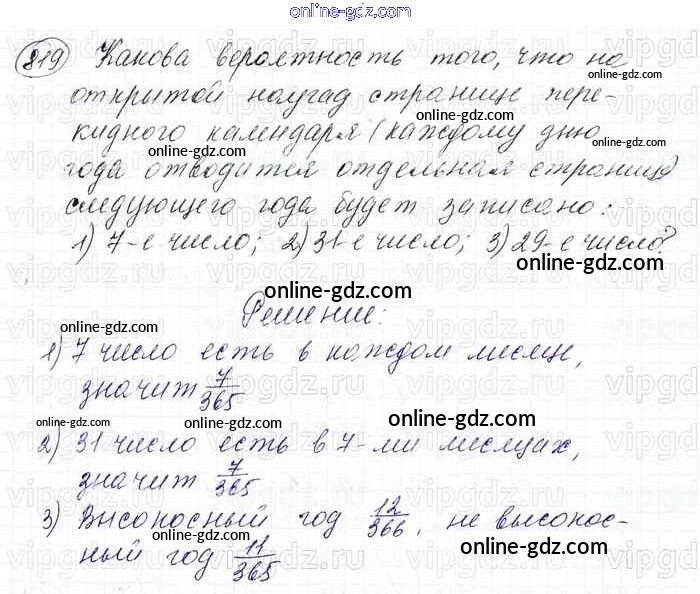 online-gdz.com
819 Какова вероятность того, что на
открытой наугад странице пере-
кидного календаря (каждому дню
года отводится отдельная страница)
следующего года будет записано:
1) 7-е число; 2) 31-е число; 3) 29-е число?
Решение:
1) 7 число есть в каждом месяце,
значит 7/365
2) 31 число есть в 7-ми месяцах,
значит 7/365
3) Високосный год 12/366, не високос-
ный год 11/365
online-gdz.com
online-gdz.com
online-gdz.com
online-gdz.com
online-gdz.com
online-gdz.com
online-gdz.com
online-gdz.com
online-gdz.com
online-gdz.com
online-gdz.com
online-gdz.com
online-gdz.com